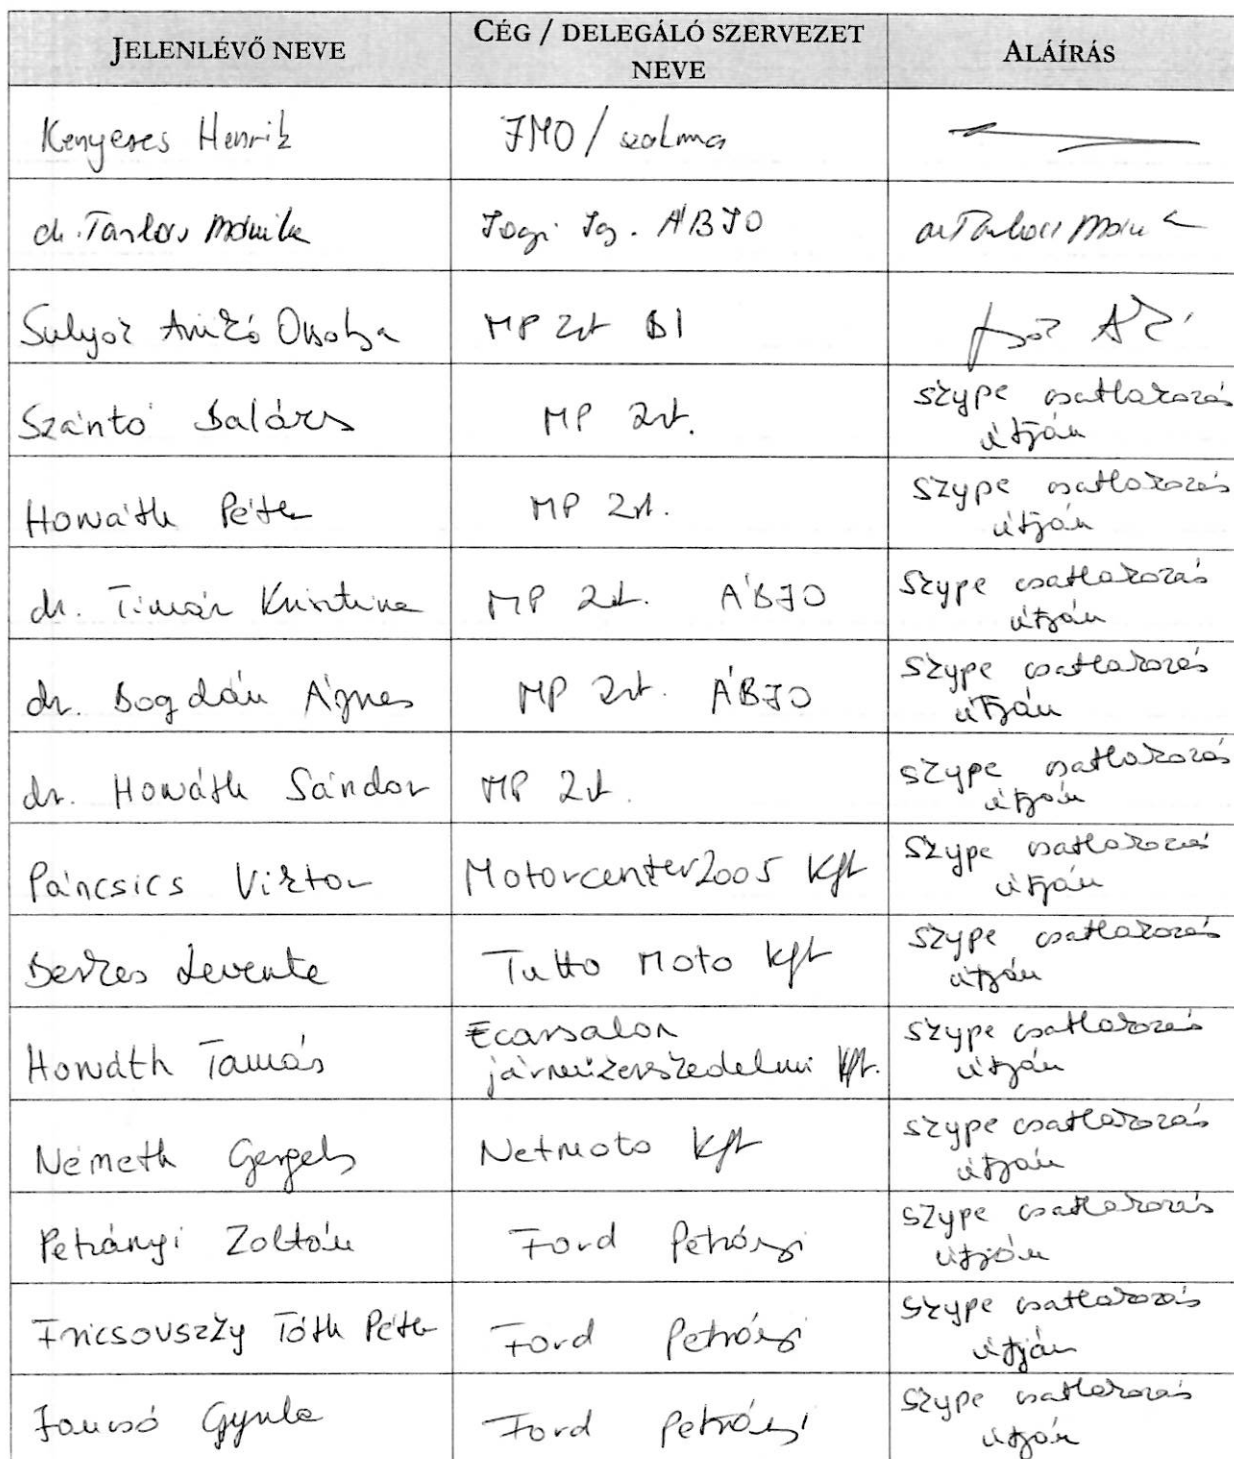 JELENLÉVŐ NEVE
CÉG / DELEGÁLÓ SZERVEZET
NEVE
ALÁÍRÁS
Kenyeres Henrik
JMO / szakmai
dr. Tanlocs Mónika
Jogi Ig. ÁBJO
Sulyok Anikó Orsolya
MP Zrt BI
Szántó Balázs
MP Zrt.
Szype csatlakozás
útján
Horváth Péter
MP Zrt.
Szype csatlakozás
útján
dr. Timár Krisztina
MP Zrt. ÁBJO
Szype csatlakozás
útján
dr. Bogdán Ágnes
MP Zrt. ÁBJO
Szype csatlakozás
útján
dr. Horváth Sándor
MP Zrt.
Szype csatlakozás
útján
Páncsics Viktor
Motorcenter2005 Kft
Szype csatlakozás
útján
Berkes Levente
Tutto Moto Kft
Szype csatlakozás
útján
Horváth Tamás
Ecarsalon
járműkereskedelmi Kft.
Szype csatlakozás
útján
Németh Gergely
Netmoto Kft
Szype csatlakozás
útján
Petrányi Zoltán
Ford Petrányi
Szype csatlakozás
útján
Fricsovszky Tóth Péter
Ford Petrányi
Szype csatlakozás
útján
Gyula
Ford Petrányi
Szype csatlakozás
útján